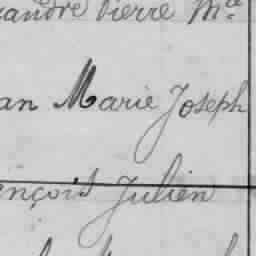 andre Pierre Me
an Marie Joseph
ençois Julien